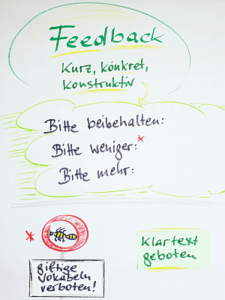 Feedback
Kurz, konkret,
konstruktiv
Bitte beibehalten:
Bitte weniger:*
Bitte mehr:
*
giftige
Vokabeln
verboten!
Klartext
geboten